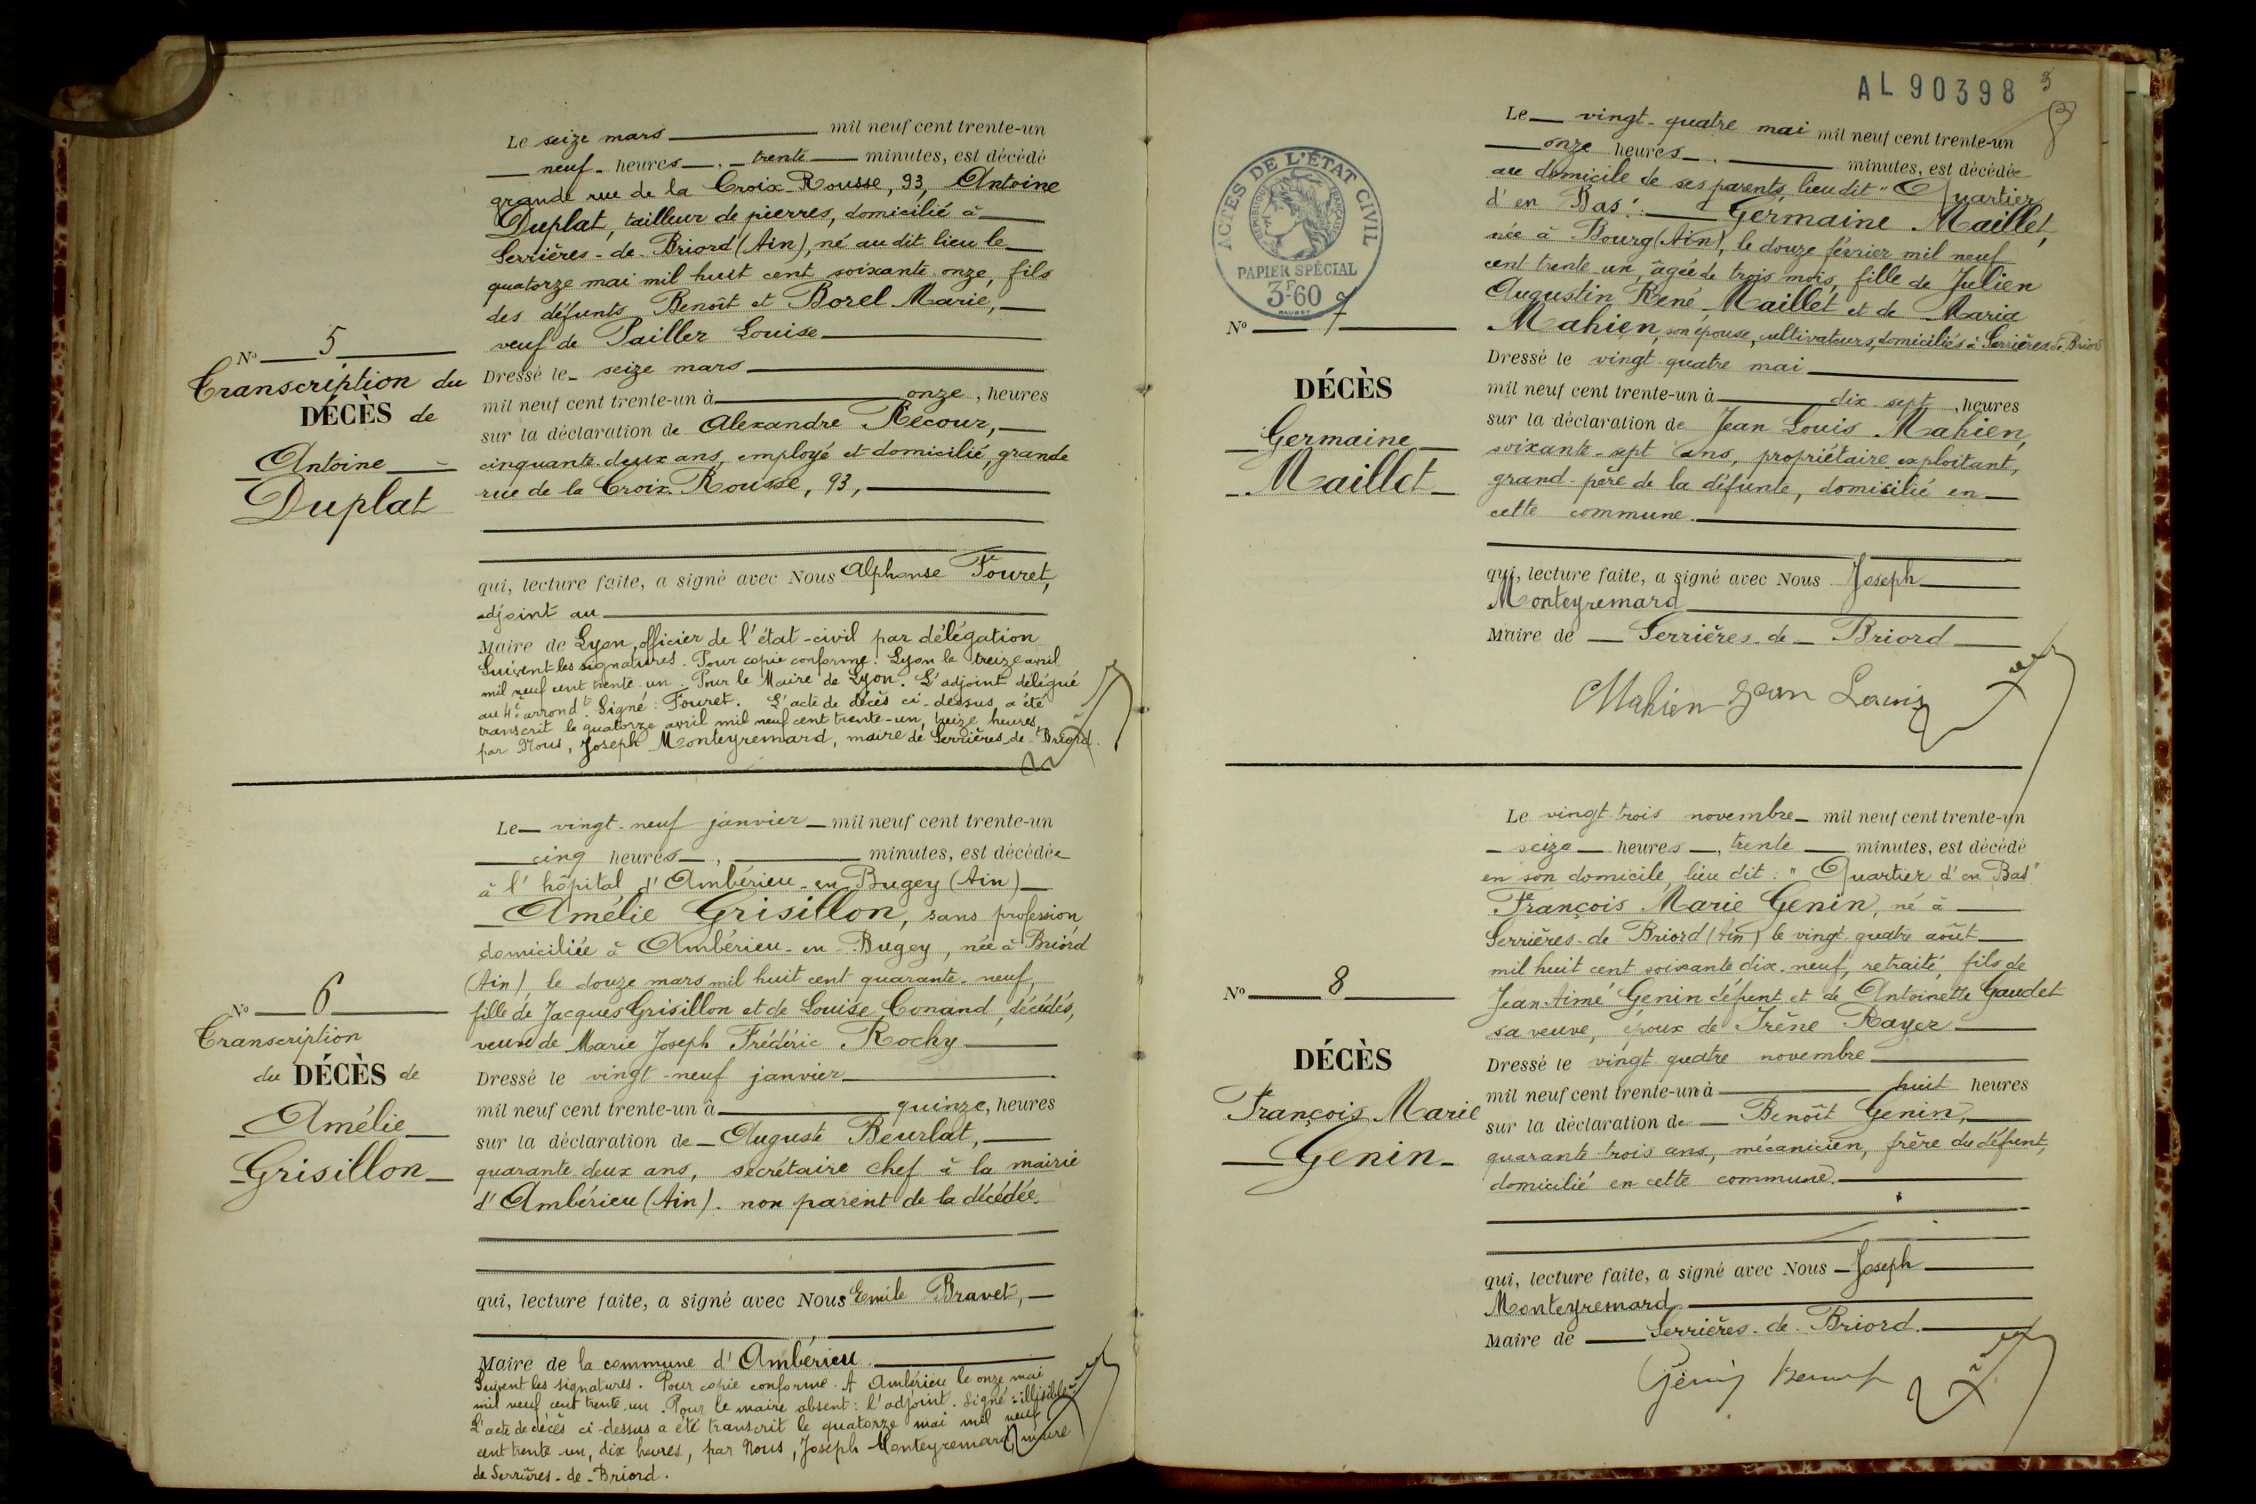 Le seize mars mil neuf cent trente-un
neuf heures, trente minutes, est décédé
grande rue de la Croix-Rousse, 93, Antoine
Duplat, tailleur de pierres, domicilié à
Serrières-de-Briord (Ain), né au dit lieu le
quatorze mai mil huit cent soixante-onze, fils
des défunts Benoît et Borel Marie,
veuf de Pailler Louise
Nº 5
Transcription du
DÉCÈS de
Antoine
Duplat
Dressé le seize mars
mil neuf cent trente-un à onze, heures
sur la déclaration de Alexandre Récour,
cinquante-deux ans, employé et domicilié, grande
rue de la Croix-Rousse, 93,
qui, lecture faite, a signé avec Nous Alphonse Fouret,
adjoint au
Maire de Lyon, officier de l'état-civil par délégation
Suivent les signatures. Pour copie conforme. Lyon le treize avril
mil neuf cent trente-un. Pour le Maire de Lyon. L'adjoint délégué
au 4e arrondt. Signé : Fouret. L'acte de décès ci-dessus a été
transcrit le quatorze avril mil neuf cent trente-un, treize heures,
par Nous, Joseph Monteyremard, maire de Serrières-de-Briord.
Le vingt-neuf janvier mil neuf cent trente-un
cinq heures, minutes, est décédée
à l'hôpital d'Ambérieu-en-Bugey (Ain)
Amélie Grisillon, sans profession
domiciliée à Ambérieu-en-Bugey, née à Briord
(Ain) le douze mars mil huit cent quarante-neuf,
fille de Jacques Grisillon et de Louise Conand, décédés,
veuve de Marie Joseph Frédéric Rochy
Nº 6
Transcription
du DÉCÈS de
Amélie
Grisillon
Dressé le vingt-neuf janvier
mil neuf cent trente-un à quinze, heures
sur la déclaration de Auguste Beurlat,
quarante-deux ans, secrétaire chef à la mairie
d'Ambérieu (Ain). non parent de la décédée.
qui, lecture faite, a signé avec Nous Emile Bravet,
Maire de la commune d'Ambérieu.
Suivent les signatures. Pour copie conforme. A Ambérieu le onze mai
mil neuf cent trente-un. Pour le maire absent : l'adjoint. Signé : illisible.
L'acte de décès ci-dessus a été transcrit le quatorze mai mil neuf
cent trente-un, dix heures, par Nous, Joseph Monteyremard, maire
de Serrières-de-Briord.
AL 90398 3
ACTES DE L'ÉTAT CIVIL
RÉPUBLIQUE FRANÇAISE
PAPIER SPÉCIAL
3F60
Le vingt-quatre mai mil neuf cent trente-un
onze heures, minutes, est décédée
au domicile de ses parents, lieu dit "Quartier
d'en Bas" : Germaine Maillet,
née à Bourg (Ain), le douze février mil neuf
cent trente-un, âgée de trois mois, fille de Julien
Augustin René Maillet et de Maria
Mahien, son épouse, cultivateurs, domiciliés à Serrières-de-Briord
Nº 7
DÉCÈS
Germaine
Maillet
Dressé le vingt-quatre mai
mil neuf cent trente-un à dix-sept, heures
sur la déclaration de Jean Louis Mahien,
soixante-sept ans, propriétaire exploitant,
grand-père de la défunte, domicilié en
cette commune.
qui, lecture faite, a signé avec Nous Joseph
Monteyremard
Maire de Serrières-de-Briord
Mahien Jean Louis
Le vingt-trois novembre mil neuf cent trente-un
seize heures, trente minutes, est décédé
en son domicile, lieu dit : "Quartier d'en Bas"
François Marie Genin, né à
Serrières-de-Briord (Ain) le vingt-quatre août
mil huit cent soixante dix-neuf, retraité, fils de
Jean-Aimé Genin défunt et de Antoinette Gaudet
sa veuve, époux de Irène Rayer
Nº 8
DÉCÈS
François Marie
Genin
Dressé le vingt-quatre novembre
mil neuf cent trente-un à huit heures
sur la déclaration de Benoît Genin,
quarante-trois ans, mécanicien, frère du défunt,
domicilié en cette commune.
qui, lecture faite, a signé avec Nous Joseph
Monteyremard
Maire de Serrières-de-Briord.
Genin Benoit